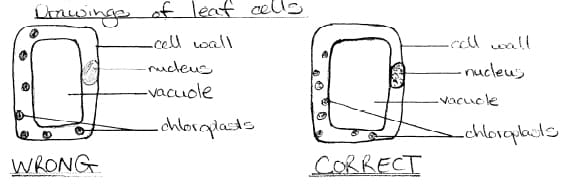 Drawings of leaf cells
cell wall
nucleus
vacuole
chloroplasts
WRONG
cell wall
nucleus
vacuole
chloroplasts
CORRECT